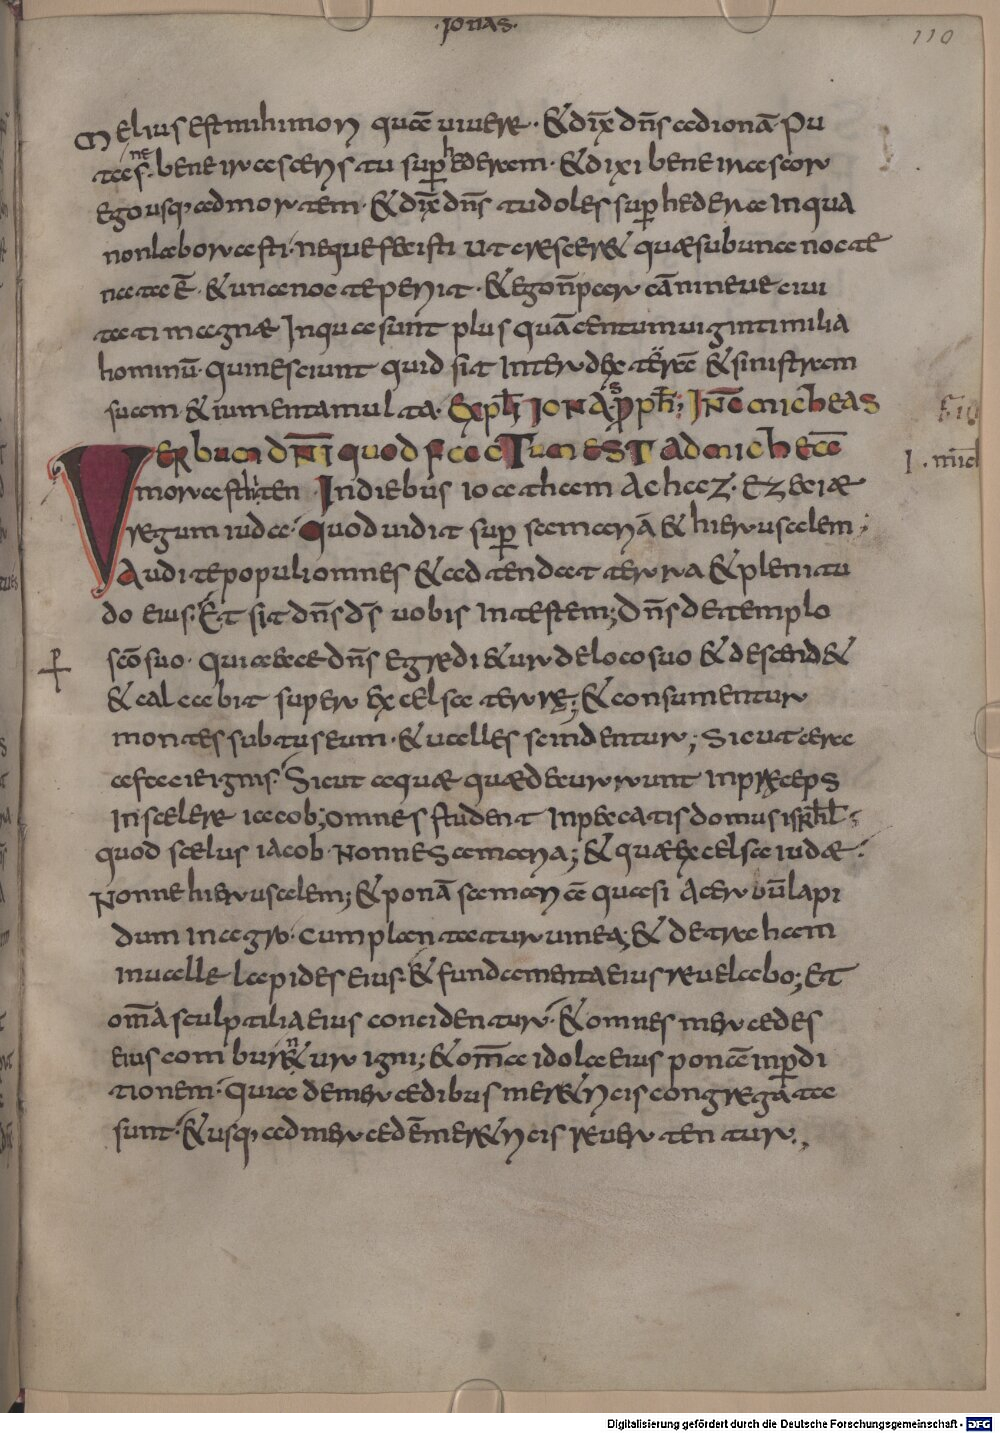 ·Jonas·
110
Melius est mihi mori quā uiuere·&dix̄ dn̄s adionā·Pu
tas·ne bene irasceris·tu sup̱ hederam·&dixi bene irascor
ego usq; admortem·&dix̄ dn̄s tudoles sup̱ hederā Inqua
nonlaborasti·neque fecisti ut cresceret quæ sub una nocte
nata ē·&una nocte periit·&ego n̄ parcā nineue ciui
tati magnæ Inqua sunt plus quā centumuiginti milia
hominū·quinesciunt quid sit Inter dexterā &sinistram
suam &iumentamulta·Expl̄ Jona p̱ph̄; IN̄c micheas
Verbum dn̄i quod factum est ad michēā
morasthiten Indiebus ioatham Achaz·Ezeciæ
regum iudæ·Quod uidit sup̱ samariā &hierusalem;
Audite populi omnes &adtendat terra &plenitu
do eius·Et sit dn̄s ds̄ uobis Intestem; Dn̄s detemplo
sc̄o suo·Quia ecce dn̄s egredietur deloco suo &descendet
&calcabit super excelsa terræ;&consumentur
montes subtus eum·&ualles scindentur; Sicut cera
afacie ignis·Sicut aquæ quædecurrunt Inpræceps
Inscelere iacob; omnes student Inpeccatis domus isrl̄;
quod scelus iacob Nonne Samaria;&quæ excelsa iudæ·
Nonne hierusalem;&ponā samariā quasi Aceruūlapi
dum In agro·Cumplantatur uinea;&detraham
Inualle lapides eius·&fundamenta eius reuelabo; Et
om̄a sculptilia eius concidentur·&omnes mercedes
eius comburentur igni;&om̄a idola eius ponā inp̱di
tionem·Quia demercedibus meretricis congregata
sunt·&usq; admercedē meretricis reuertentur·,
Digitalisierung gefördert durch die Deutsche Forschungsgemeinschaft - DFG